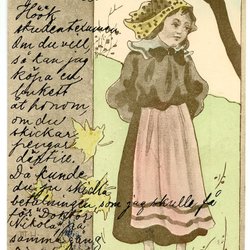 Höök
studenterna
Om du vill,
så kan jag
köpa en
åt honom
om du
skickar
pengar
därtill.
Då kunde
du ju skicka
betalningen som jag skulle få
för Doktor
Nikola
samma gång